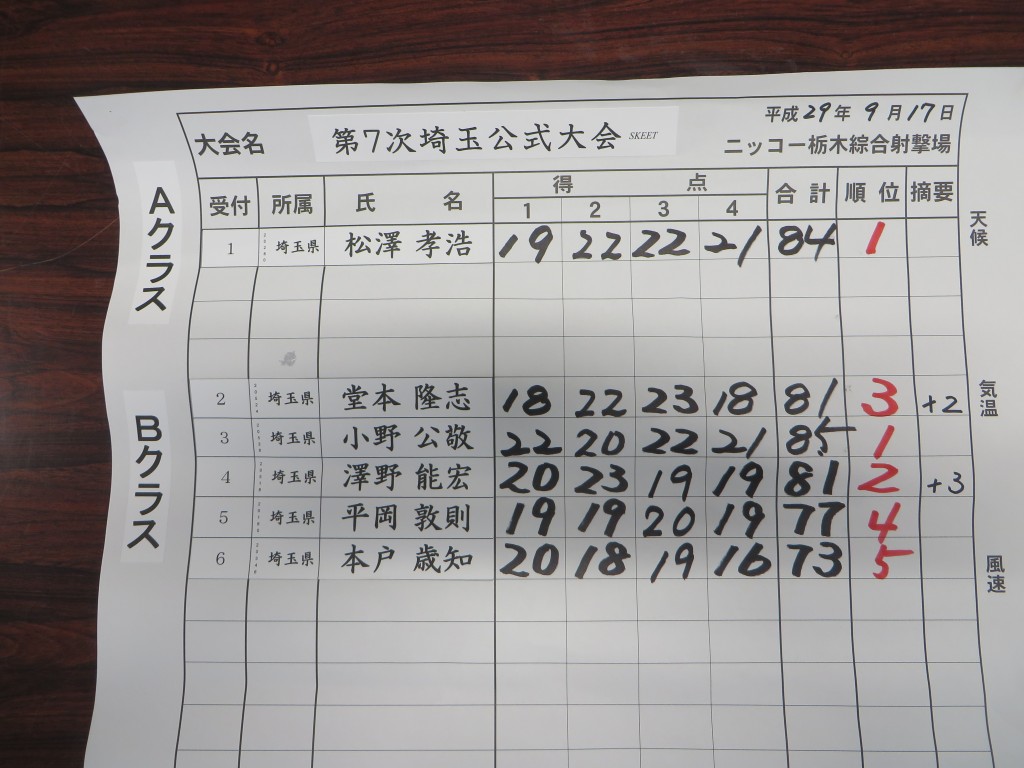 平成29年 9月17日
大会名 第7次埼玉公式大会 SKEET ニッコー栃木綜合射撃場
受付 所属 氏 名 得 点 合計 順位 摘要
1 2 3 4
Aクラス
1 埼玉県 松澤 孝浩 19 22 22 21 84 1
天候
Bクラス
2 埼玉県 堂本 隆志 18 22 23 18 81 3 +2
気温
3 埼玉県 小野 公敬 22 20 22 21 85 1
4 埼玉県 澤野 能宏 20 23 19 19 81 2 +3
5 埼玉県 平岡 敦則 19 19 20 19 77 4
6 埼玉県 本戸 歳知 20 18 19 16 73 5
風速